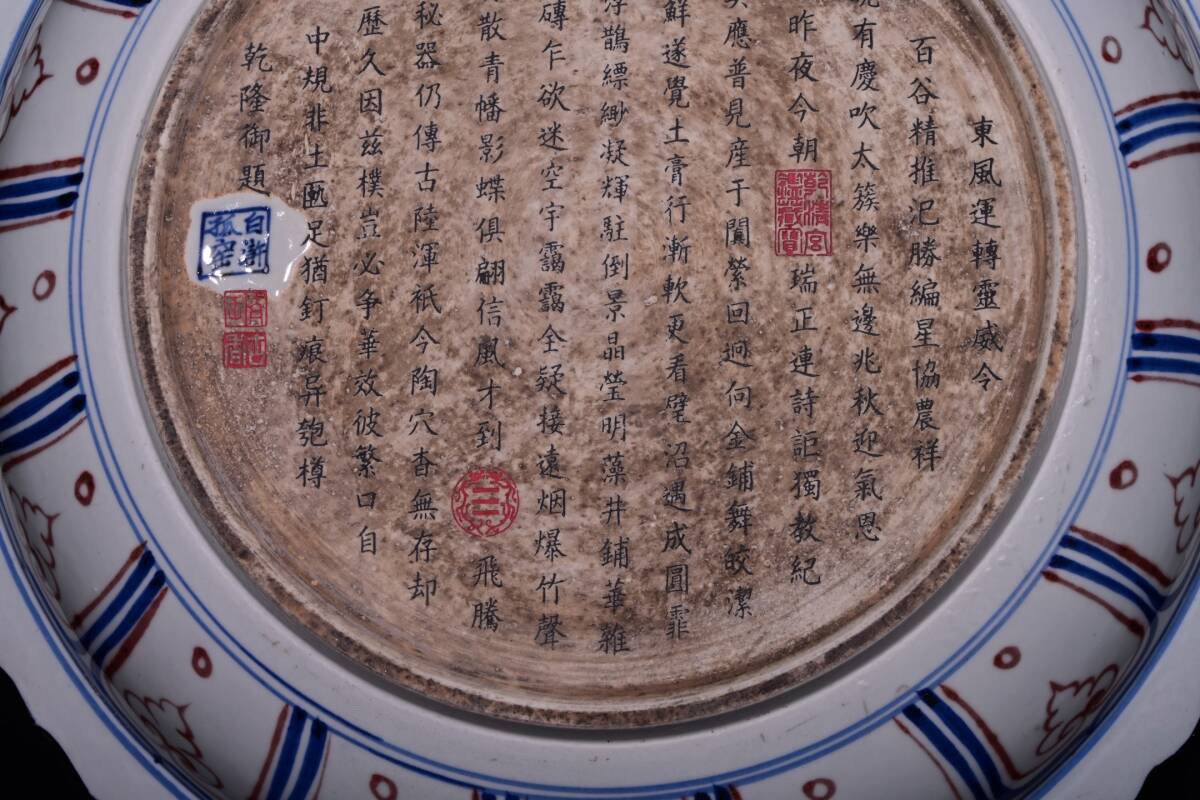 東風運轉靈威令
百谷精推汜勝編星協農祥
有慶吹太簇樂無邊兆秋迎氣恩
昨夜今朝
乾清宮鑑藏寶
瑞正連詩詎獨教紀
應普見産于闐縈回迥向金鋪舞皎潔
鮮遂覺土膏行漸軟更看壁沼遇成圓霏
鵲縹緲凝輝駐倒景晶瑩明藻井鋪華雜
磚乍欲迷空宇靄靄全疑接遠烟爆竹聲
散青幡影蝶俱翩信風才到
三
飛騰
秘器仍傳古陸渾祇今陶穴杳無存却
歷久因兹樸豈必爭華效彼繁口自
中規非土匭足猶釘痕异匏樽
乾隆御題